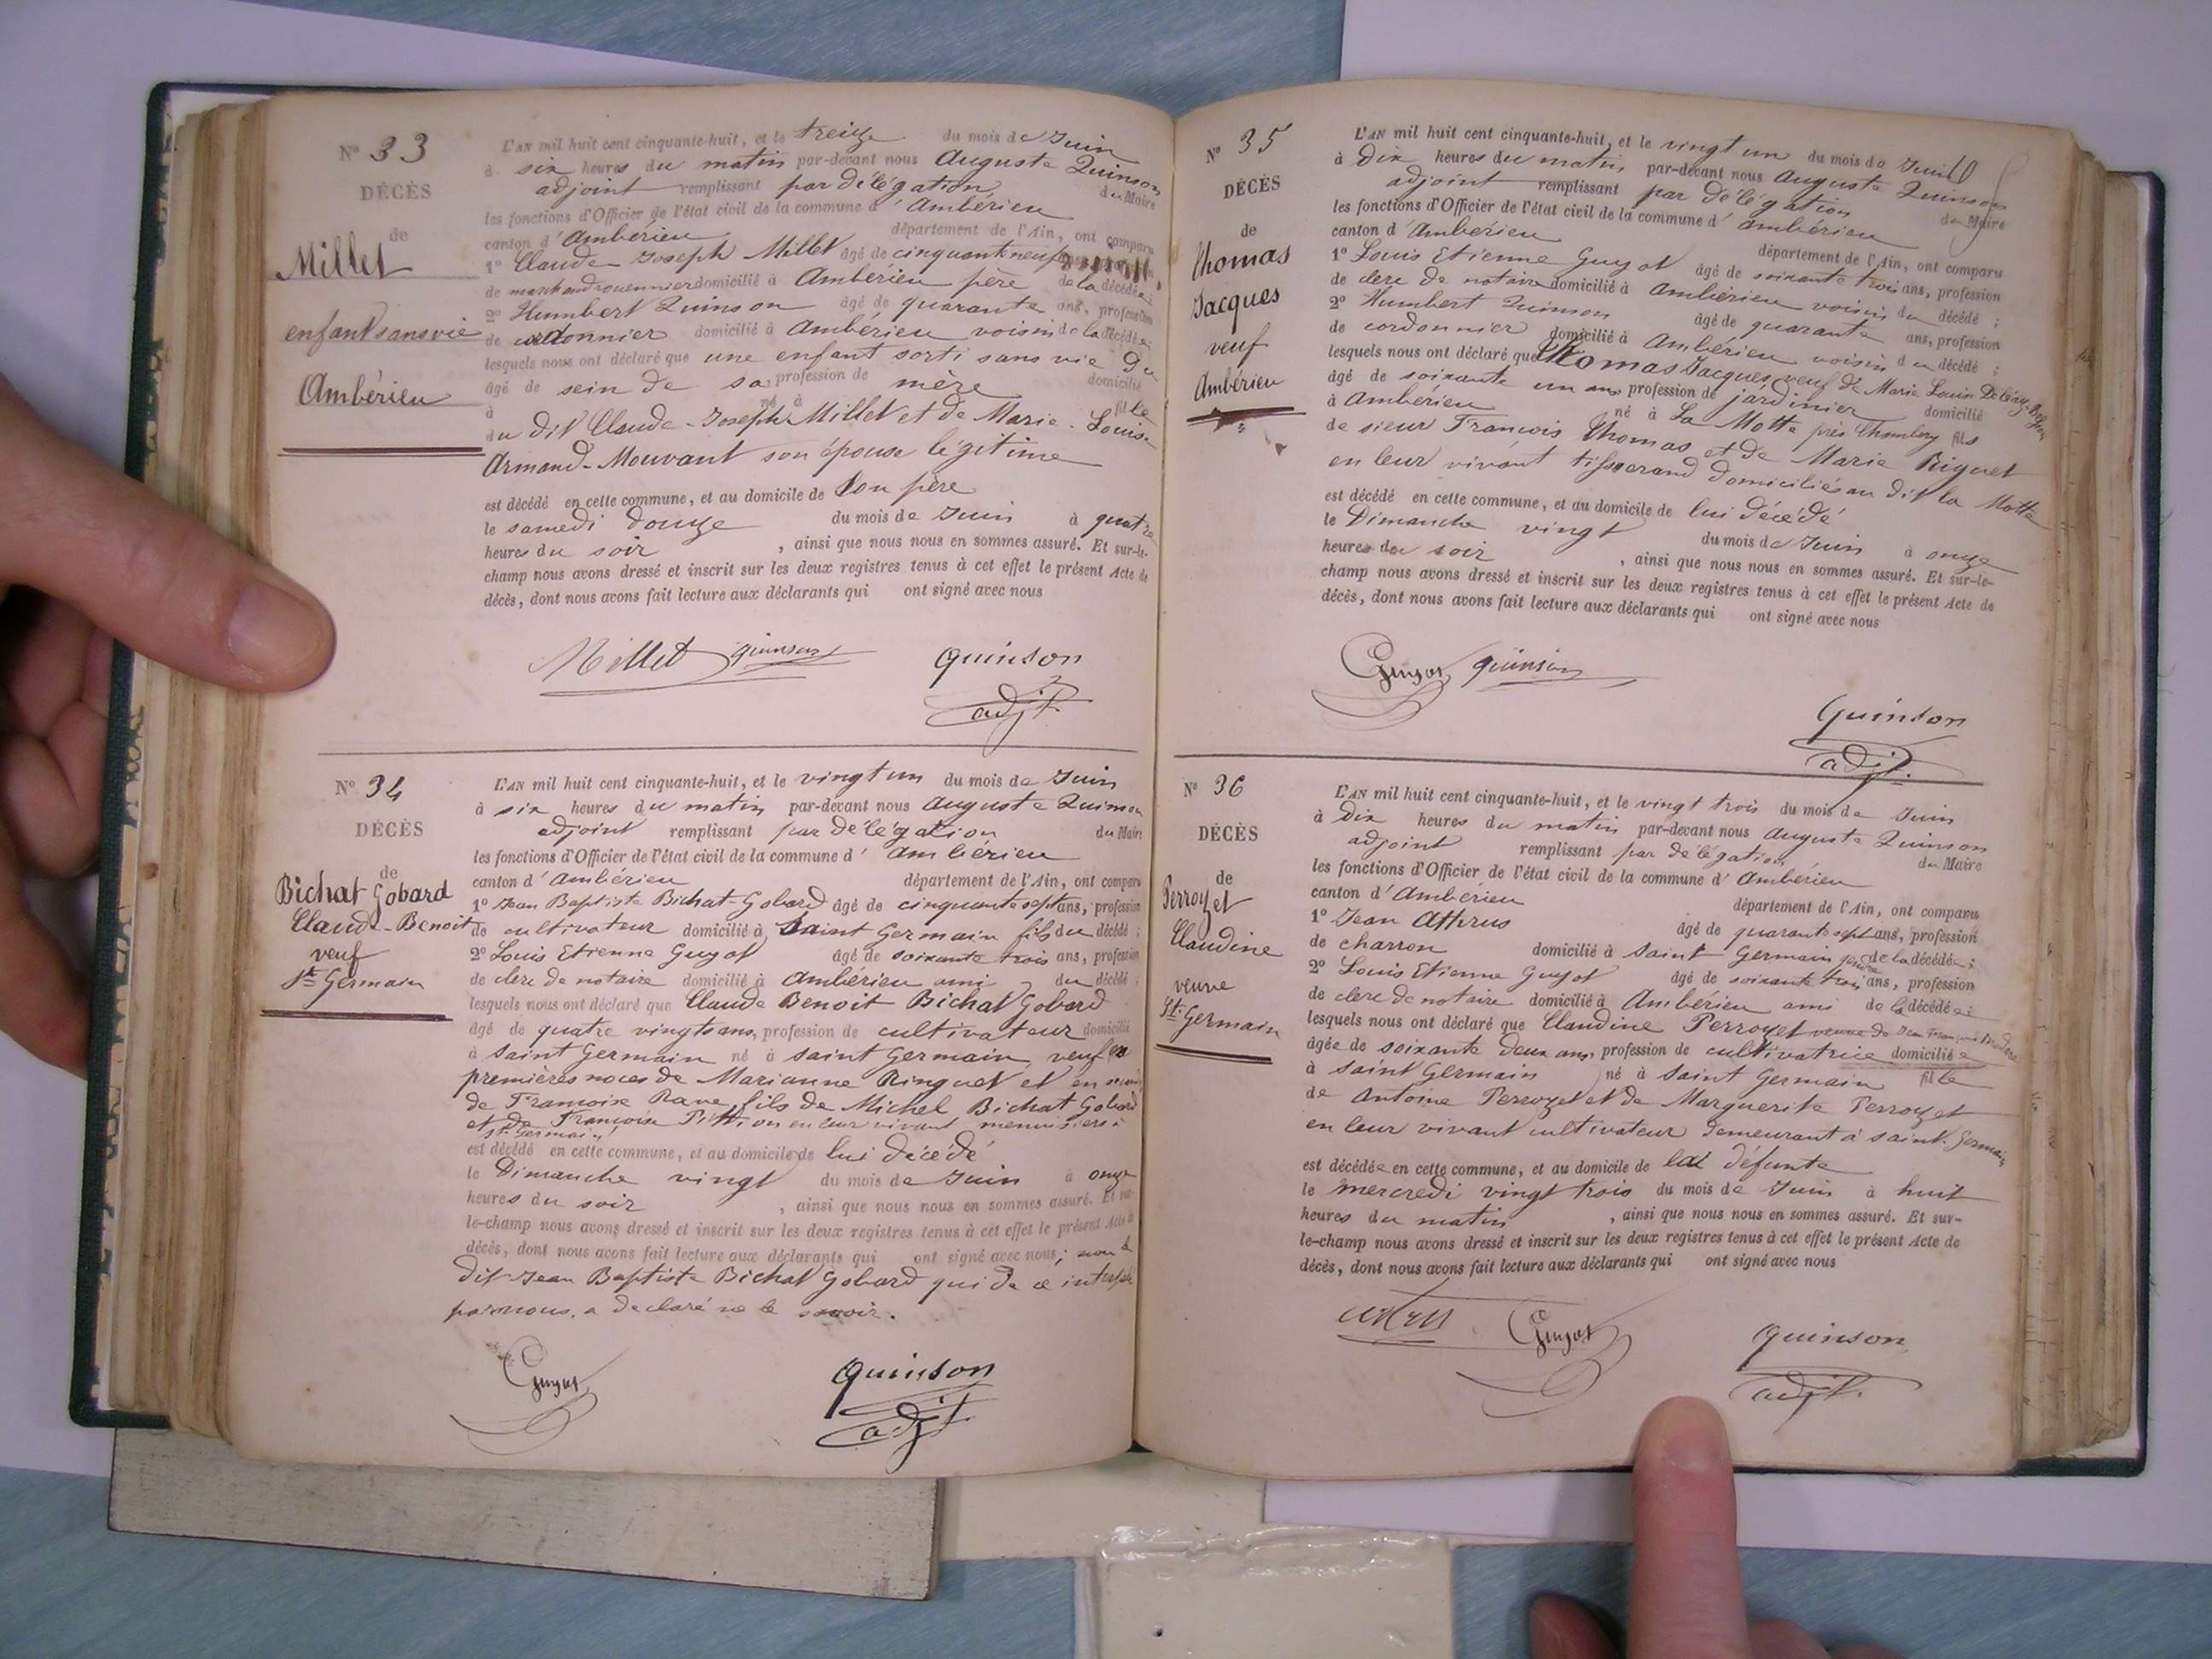 N° 33
DÉCÈS
de
Millet
enfant sans vie
Ambérieu
L'AN mil huit cent cinquante-huit, et le treize du mois de Juin
à six heures du matin par-devant nous Auguste Quinson
adjoint remplissant par délégation du Maire
les fonctions d'Officier de l'état civil de la commune d' Ambérieu
canton d' Ambérieu département de l'Ain, ont comparu
1° Claude-Joseph Millet âgé de cinquante neuf
de marchand rouennier domicilié à Ambérieu père de la décédée;
2° Humbert Quinson âgé de quarante ans, profession
de cordonnier domicilié à Ambérieu voisin de la décédée;
lesquels nous ont déclaré que une enfant sorti sans vie du
âgé de sein de sa profession de mère domicilié
à né à fille
du dit Claude-Joseph Millet et de Marie-Louise
Armand-Mouvant son épouse légitime
est décédé en cette commune, et au domicile de Son père
le samedi douze du mois de Juin à quatre
heures du soir , ainsi que nous nous en sommes assuré. Et sur-le-
champ nous avons dressé et inscrit sur les deux registres tenus à cet effet le présent Acte de
décès, dont nous avons fait lecture aux déclarants qui ont signé avec nous
Millet quinson quinson
adjt.
N° 34
DÉCÈS
de
Bichat Gobard
Claude-Benoit
veuf
St Germain
L'AN mil huit cent cinquante-huit, et le vingt un du mois de Juin
à six heures du matin par-devant nous Auguste Quinson
adjoint remplissant par délégation du Maire
les fonctions d'Officier de l'état civil de la commune d' Ambérieu
canton d' Ambérieu département de l'Ain, ont comparu
1° Jean Baptiste Bichat-Gobard âgé de cinquante sept ans, profession
de cultivateur domicilié à Saint Germain fils du décédé;
2° Louis Etienne Guyot âgé de soixante trois ans, profession
de clerc de notaire domicilié à Ambérieu ami du décédé;
lesquels nous ont déclaré que Claude Benoit Bichat Gobard
âgé de quatre vingts ans, profession de cultivateur domicilié
à Saint Germain né à Saint Germain veuf en
premières noces de Marianne Ringuet et en
de Françoise Rave fils de Michel Bichat Gobard
et de Françoise Pittion en leur vivant menuisiers à
St Germain
est décédé en cette commune, et au domicile de lui décédé
le Dimanche vingt du mois de Juin à onze
heures du soir , ainsi que nous nous en sommes assuré. Et sur-
le-champ nous avons dressé et inscrit sur les deux registres tenus à cet effet le présent Acte de
décès, dont nous avons fait lecture aux déclarants qui ont signé avec nous; non le
dit Jean Baptiste Bichat Gobard qui de ce interpelé
par nous, a déclaré ne le savoir.
Guyot quinson
adjt.
N° 35
DÉCÈS
de
Thomas
Jacques
veuf
Ambérieu
L'AN mil huit cent cinquante-huit, et le vingt un du mois de Juin
à Dix heures du matin par-devant nous Auguste Quinson
adjoint remplissant par délégation du Maire
les fonctions d'Officier de l'état civil de la commune d' Ambérieu
canton d' Ambérieu département de l'Ain, ont comparu
1° Louis Etienne Guyot âgé de soixante trois ans, profession
de clerc de notaire domicilié à Ambérieu voisin du décédé;
2° Humbert Quinson âgé de quarante ans, profession
de cordonnier domicilié à Ambérieu voisin du décédé;
lesquels nous ont déclaré que Thomas Jacques, veuf de Marie Louise
âgé de soixante un ans profession de jardinier domicilié
à Ambérieu né à La Motte près Chambery fils
de sieur François Thomas et de Marie Riguet
en leur vivant tisserand domiciliés au dit la Motte
est décédé en cette commune, et au domicile de lui décédé
le Dimanche vingt du mois de Juin à onze
heures du soir , ainsi que nous nous en sommes assuré. Et sur-le-
champ nous avons dressé et inscrit sur les deux registres tenus à cet effet le présent Acte de
décès, dont nous avons fait lecture aux déclarants qui ont signé avec nous
Guyot quinson
Quinson
adjt.
N° 36
DÉCÈS
de
Perrozet
Claudine
veuve
St. Germain
L'AN mil huit cent cinquante-huit, et le vingt trois du mois de Juin
à Dix heures du matin par-devant nous Auguste Quinson
adjoint remplissant par délégation du Maire
les fonctions d'Officier de l'état civil de la commune d' Ambérieu
canton d' Ambérieu département de l'Ain, ont comparu
1° Jean Athrus âgé de quarante sept ans, profession
de charron domicilié à Saint Germain gendre de la décédée;
2° Louis Etienne Guyot âgé de soixante trois ans, profession
de clerc de notaire domicilié à Ambérieu ami de la décédée;
lesquels nous ont déclaré que Claudine Perrozet veuve de Jean François
âgée de soixante deux ans, profession de cultivatrice domiciliée
à Saint Germain né à Saint Germain fille
de Antoine Perrozet et de Marguerite Perrozet
en leur vivant cultivateur demeurant à Saint-Germain
est décédée en cette commune, et au domicile de la défunte
le mercredi vingt trois du mois de Juin à huit
heures du matin , ainsi que nous nous en sommes assuré. Et sur-
le-champ nous avons dressé et inscrit sur les deux registres tenus à cet effet le présent Acte de
décès, dont nous avons fait lecture aux déclarants qui ont signé avec nous
Guyot quinson
adjt.